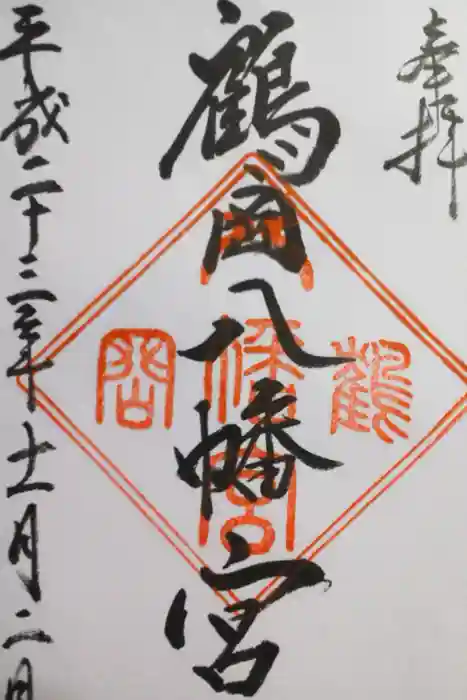 奉拝
鶴岡八幡宮
鶴岡八幡宮
平成二十三年十一月二日